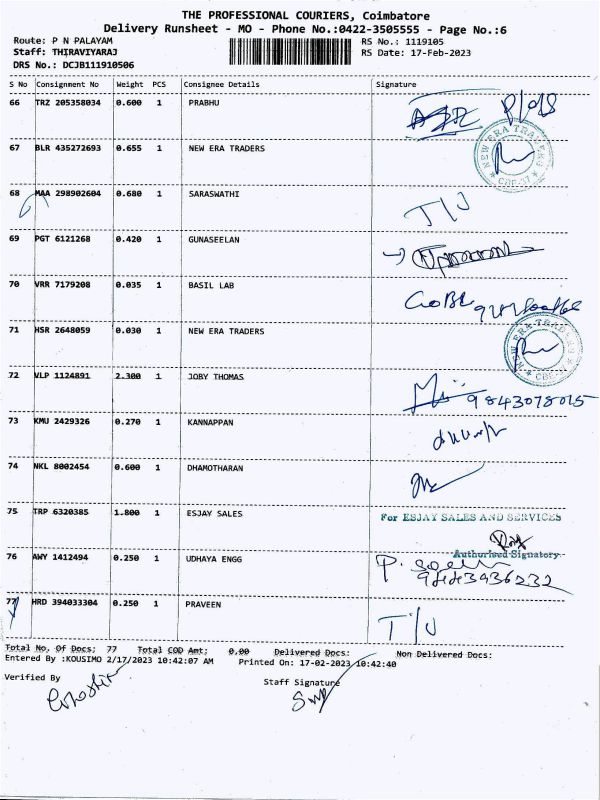 THE PROFESSIONAL COURIERS, Coimbatore
Delivery Runsheet - MO - Phone No.:0422-3505555 - Page No.:6
Route: P N PALAYAM RS No.: 1119105
Staff: THIRAVIYARAJ RS Date: 17-Feb-2023
DRS No.: DCJB111910506
S No Consignment No Weight PCS Consignee Details Signature
66 TRZ 205358034 0.600 1 PRABHU
67 BLR 435272693 0.655 1 NEW ERA TRADERS
NEW ERA TRADERS
CBE-37
68 MAA 298902604 0.680 1 SARASWATHI
T/U
69 PGT 6121268 0.420 1 GUNASEELAN
70 VRR 7179208 0.035 1 BASIL LAB
71 HSR 2648059 0.030 1 NEW ERA TRADERS
NEW ERA TRADERS
CBE
72 VLP 1124891 2.300 1 JOBY THOMAS
9843078015
73 KMU 2429326 0.270 1 KANNAPPAN
74 NKL 8002454 0.600 1 DHAMOTHARAN
75 TRP 6320385 1.800 1 ESJAY SALES
For ESJAY SALES AND SERVICES
Authorised Signatory
76 AWY 1412494 0.250 1 UDHAYA ENGG
9843936232
77 HRD 394033304 0.250 1 PRAVEEN
T/U
Total No. Of Docs: 77 Total COD Amt: 0.00 Delivered Docs: Non Delivered Docs:
Entered By :KOUSIMO 2/17/2023 10:42:07 AM Printed On: 17-02-2023 10:42:40
Verified By Staff Signature